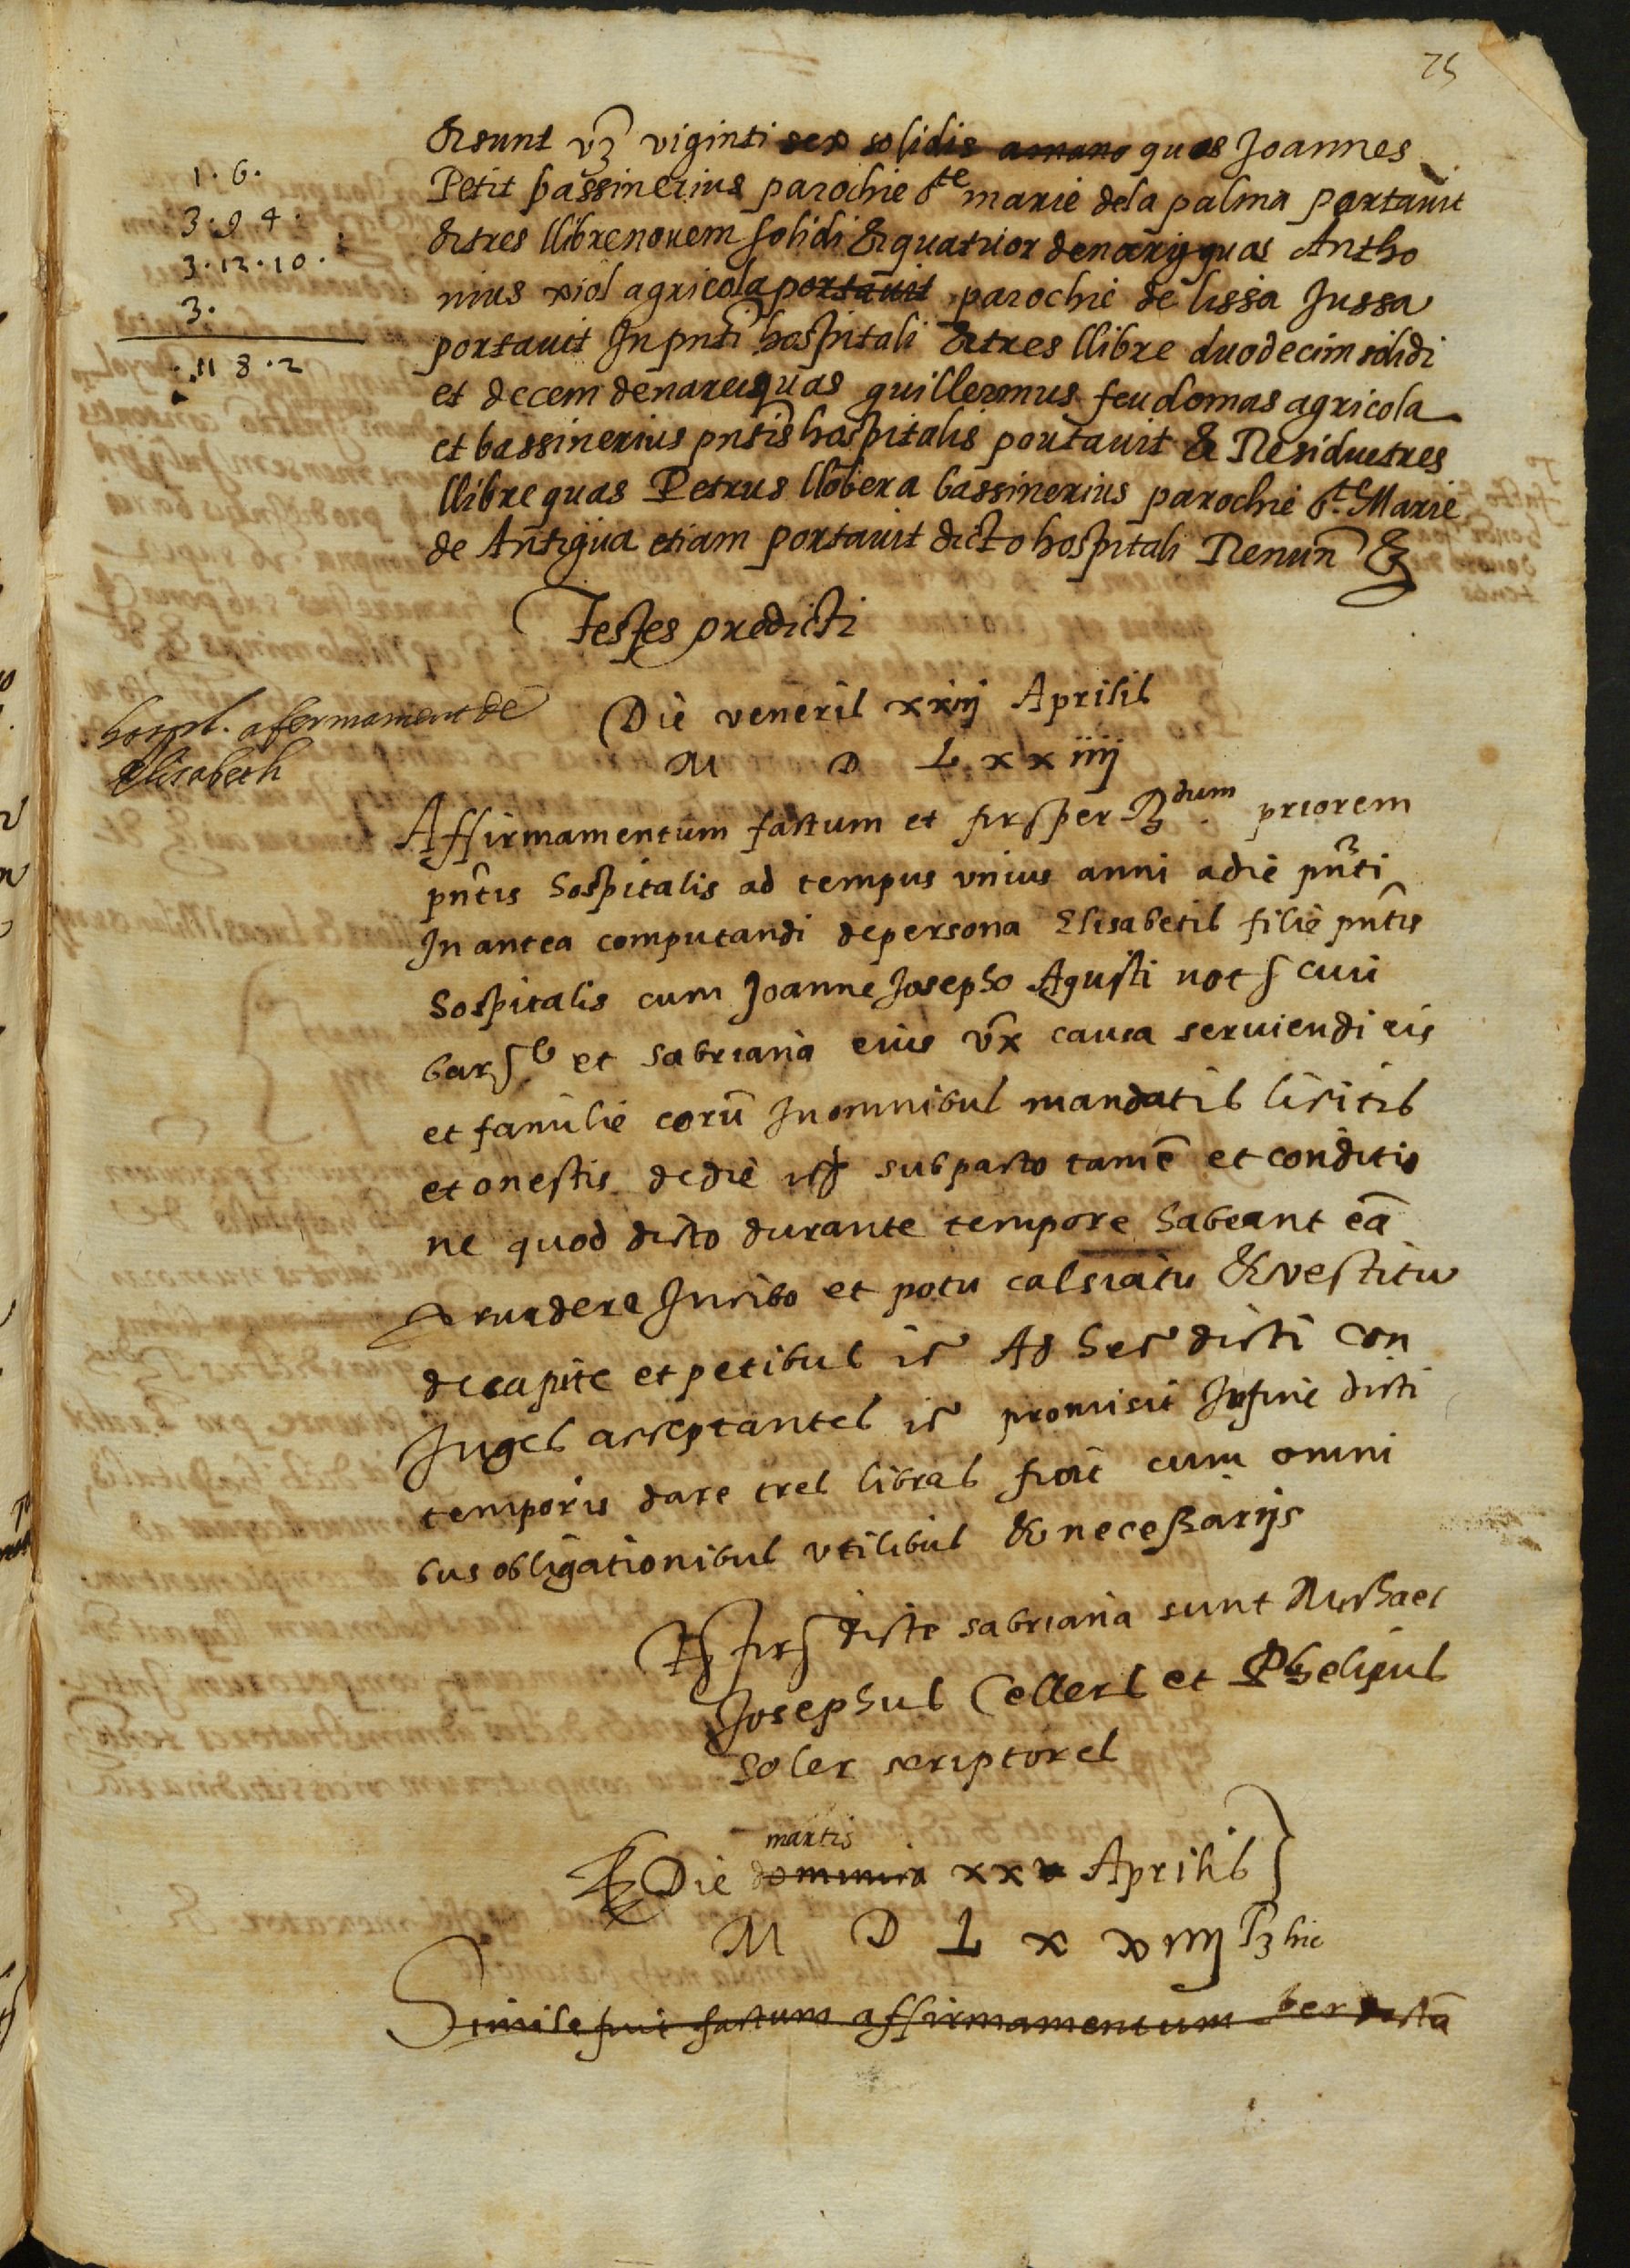 75
& sunt vz viginti sex solidis amano quos Joannes
Petit bassinerius parochie Ste marie dela palma portauit
& tres llibre nouem solidi & quatuor denarij quas Antho
nius xiol agricola portauit parochie de lissa Jussa
portauit In pnti hospitali & tres llibre duodecim solidi
et decem denareis quas guillermus feudomas agricola
et bassinerius pntis hospitalis portauit & Residue tres
llibre quas Petrus llobera bassinerius parochie Ste Marie
de Antiqua etiam portauit dicto hospitali Renun &
1 . 6 .
3 . 9 4 .
3 . 12 . 10 .
3 .
. 11 8 . 2
Testes predicti
hospl. afermament de
Elisabeth
Die veneris xxiij Aprilis
M D L x x iiij
Affirmamentum factum et firs per Rdum priorem
pntis hospitalis ad tempus vnius anni adie pnti
In antea computandi de persona Elisabetis filie pntis
hospitalis cum Joanne Josepho Agusti not s ciui
bar s et habriana eius vx causa seruiendi eis
et familie eoru In omnibus mandatis licitis
et onestis de die sub pacto tame et conditio
ne quod dicto durante tempore habeant ea
prouidere In cibo et potu calsiatu & vestitu
de capite et petibus ic Ad hec dicti con
Juges acceptantes ic promisit In fine dicti
temporis dare tres libras cum omni
bus obligationibus vtilibus & necessarijs
Ts firs dicte sabriana sunt Michael
Josephus Cellers et Phelipus
Soler scriptores
martis
Die dominica xxv Aprilis
M D L x x iiij hic
Simile fuit factum affirmamentum per dicta